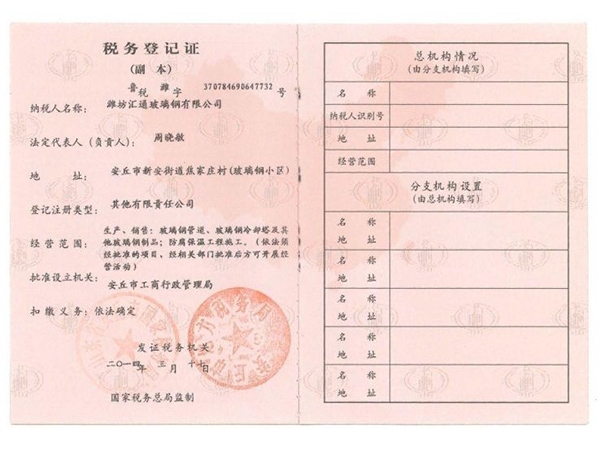 税务登记证
(副 本)
鲁税 潍字 370784690647732 号
纳税人名称: 潍坊汇通玻璃钢有限公司
法定代表人(负责人) 周晓敏
地 址: 安丘市新安街道焦家庄村(玻璃钢小区)
登记注册类型: 其他有限责任公司
经营范围: 生产、销售:玻璃钢管道、玻璃钢冷却塔及其
他玻璃钢制品;防腐保温工程施工。(依法须
经批准的项目,经相关部门批准后方可开展经
营活动)
批准设立机关: 安丘市工商行政管理局
扣缴义务: 依法确定
发证税务机关
二〇一四年 三月 十七日
国家税务总局监制
总机构情况
(由分支机构填写)
名 称
纳税人识别号
地 址
经营范围
分支机构设置
(由总机构填写)
名 称
地 址
名 称
地 址
名 称
地 址
名 称
地 址
名 称
地 址